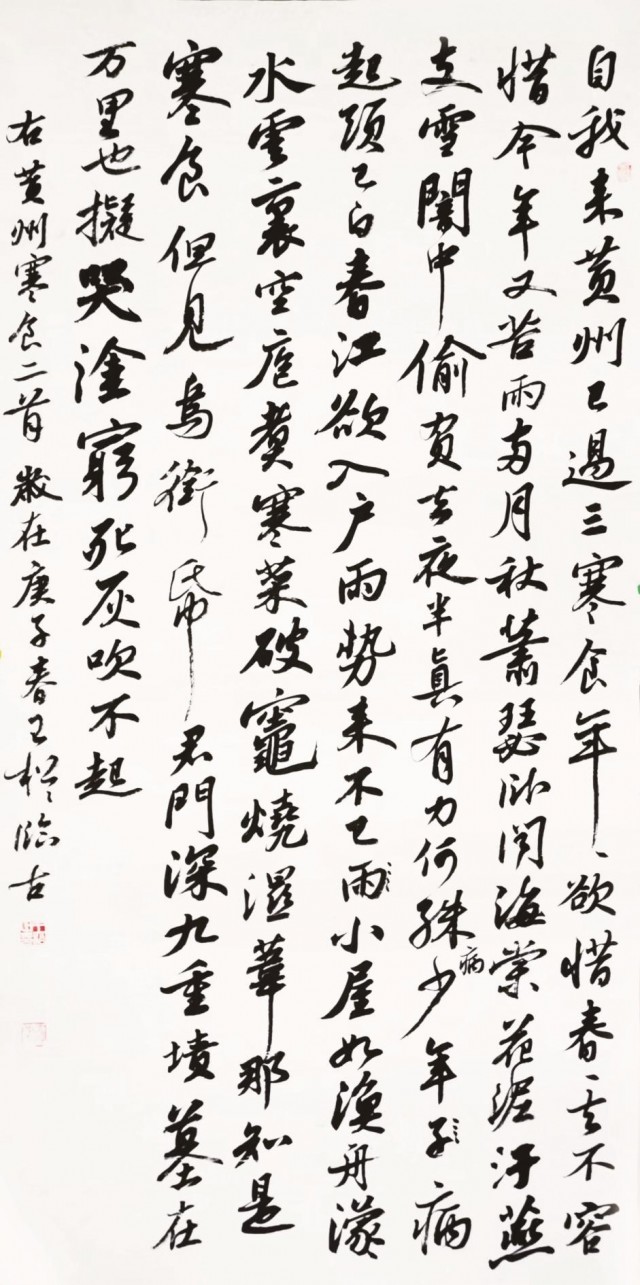 自我来黄州已過三寒食年〻欲惜春〻去不容
惜今年又苦雨两月秋蕭瑟卧闻海棠花泥汙燕
支雪闇中偷負去夜半真有力何殊病少年子病
起頭已白春江欲入户雨势来不已雨小屋如漁舟濛
水雲裏空庖煮寒菜破竈燒濕葦那知是
寒食但見烏銜帋君門深九重墳墓在
万里也擬哭塗窮死灰吹不起
右黄州寒食二首歲在庚子春王臨古